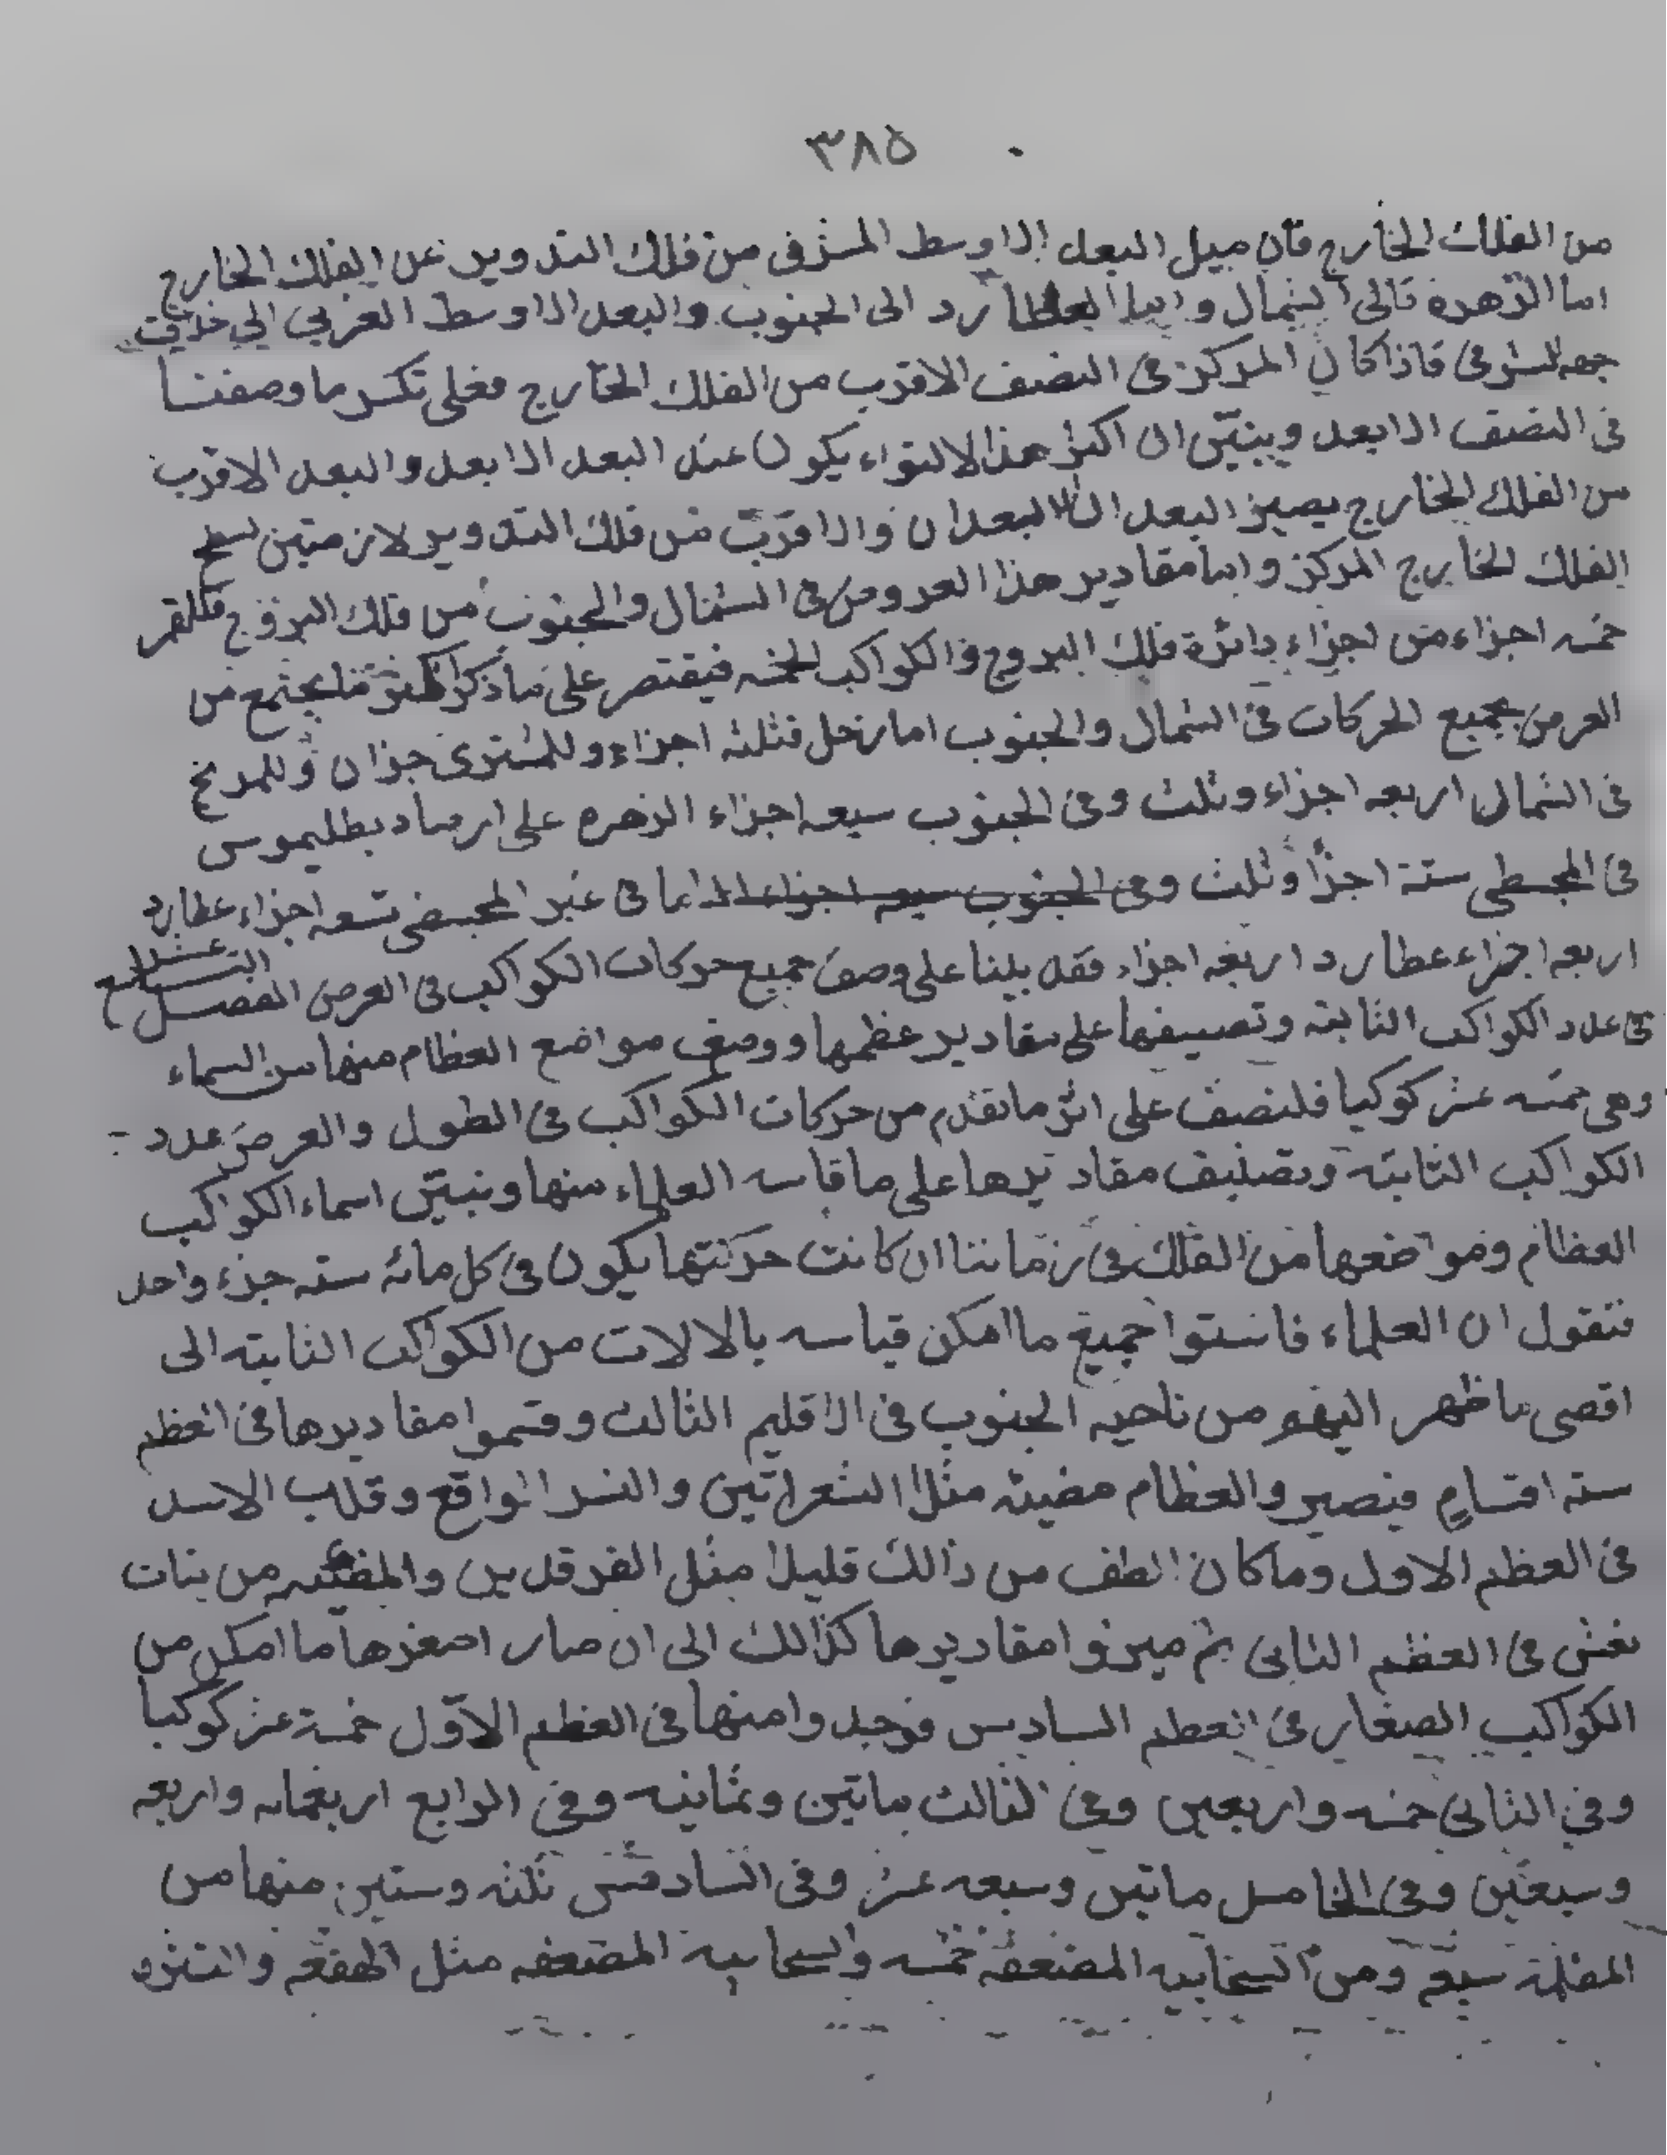 ٣٨٥
من الفلك الخارج فان ميل البعد الاوسط المشرفى من فلك التدوير عن الفلك الخارج
اما الزهره فالى الشمال واما لعطارد الى الجنوب والبعد الاوسط الغربي الي خلاف
جهه الشرقى فاذا كان المركز فى النصف الاقرب من الفلك الخارج فعلى نكس ما وصفنا
فى النصف الابعد ويبيّن ان اكثر هذا الالتواء يكون عند البعد الابعد والبعد الاقرب
من الفلك الخارج يصير البعد البعدان والاقرب من فلك التدوير لازمتين لسطح
الفلك الخارج المركز واما مقادير هذا العروض فى الشمال والجنوب من فلك البروج فللقمر
خمسه اجزاء من اجزاء دائرة فلك البروج والكواكب الخمسه فيقتصر على ما ذكر يجتمع من
العرض بجميع الحركات فى الشمال والجنوب اما زحل فثلثه اجزاء وللمشترى جزان وللمريخ
فى الشمال اربعه اجزاء وثلث وفى الجنوب سبعه اجزاء الزهره على ارصاد بطليموس
فى المجسطى ستة اجزاً وثلث وفى الجنوب سبعه اجزاء اما فى غير المجسضى تسعه اجزاء عطارد
اربعه اجزاء عطارد اربعه اجزاء فقد بلنا على وصف جميع حركات الكواكب فى العرض الفصل التاسع عشر
فى عدد الكواكب الثابته وتصييفها على مقادير عظمها ووصف مواضع العظام منها من السماء
وهى خمسه عشر كوكبا فلنصف على اثر ما تقدم من حركات الكواكب فى الطول والعرض عدد
الكواكب الثابته وتصنيف مقاديرها على ما قاسه العلماء منها ونبيّن اسماء الكواكب
العظام ومواضعها من الفلك فى زماننا ان كانت حركتها يكون فى كل مائه سته جزء واحد
فنقول ان العلماء فاستوا جميع ما امكن قياسه بالالات من الكواكب الثابته الى
اقصى ما ظهر اليهم من ناحيه الجنوب فى الاقليم الثالث وقسموا مقاديرها فى العظم
سته اقسامٍ فيصير والعظام مضيئه مثل الشعراتين والنسر الواقع وقلب الاسد
فى العظم الاول وما كان الطف من ذالك قليلا مثل الفرقدين والمضيئه من بنات
نعش فى العظم الثانى ثم ميزوا مقاديرها كذالك الى ان صار اصغرها ما امكن من
الكواكب الصغار فى العظم السادس فوجدوا منها فى العظم الاوّل خمسة عشر كوكبا
وفي الثانى خمسه واربعين وفى الثالث ماتين وثمانيه وفي الرابع اربعمائه واربعه
وسبعين وفى الخامس ماتين وسبعه عشر وفى السادس ثلثه وستين منها من
المظلمة سبعه ومن السحابيه المضعفه خمسه والسحابيه المضعفه مثل الهقعه والنثره